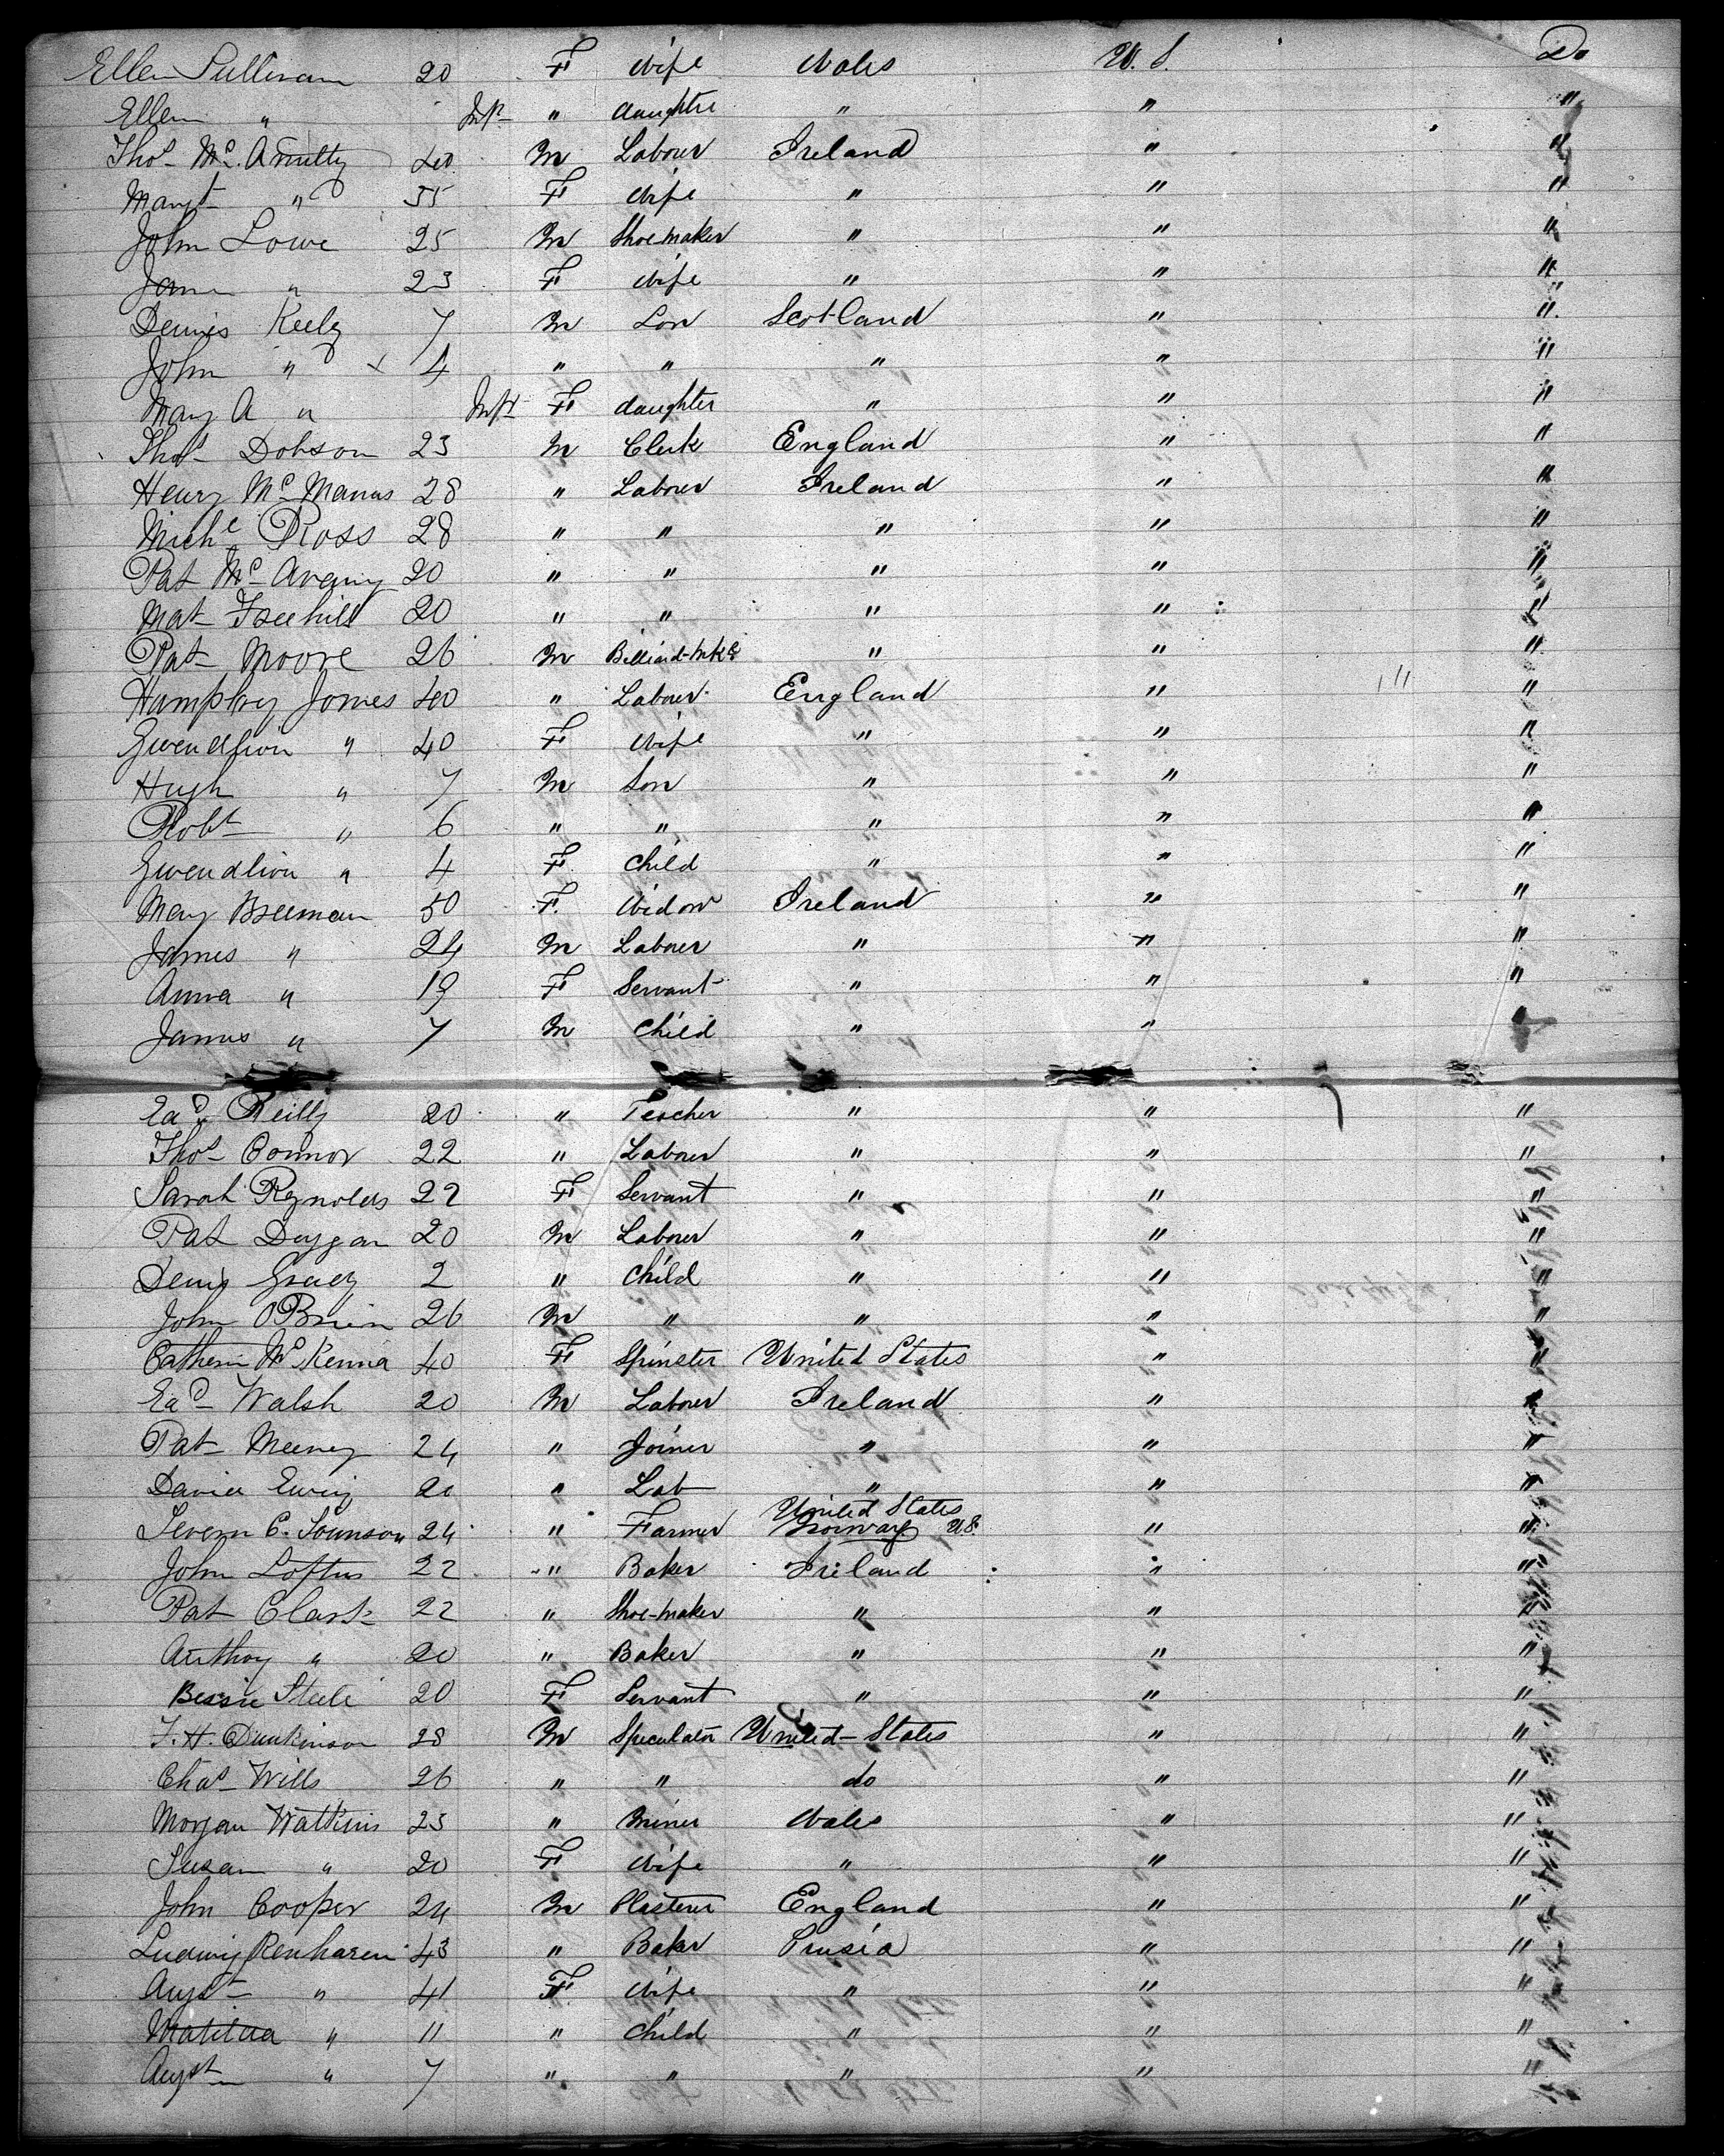 Ellen Sullivan 20 F Wife Wales U.S. Do
Ellen " Inft " daughter " " "
Thos Mc. Anulty 40 M Labourer Ireland " "
Margt " 35 F Wife " " "
John Lowe 25 M Shoe-maker " " "
Jane " 23 F Wife " " "
Dennis Keely 7 M Son Scotland " "
John " x 4 " " " " "
Mary A " Inft F daughter " " "
Thos Dobson 23 M Clerk England " "
Henry Mc Manus 28 " Labourer Ireland " "
Michl Ross 28 " " " " "
Pat Mc Aveny 20 " " " " "
Mat Freehill 20 " " " " "
Pat Moore 26 M Billiard-Mkr " " "
Humphry Jones 40 " Labourer England " "
Gwendlion " 40 F Wife " " "
Hugh " 7 M Son " " "
Robt " 6 " " " " "
Gwendlion " 4 F. Child " " "
Mary Breeman 50 F. Widow Ireland " "
James " 24 M Labourer " " "
Anna " 19 F Servant " " "
James " 7 M Child " " "
Ed Reilly 20 " Teacher " " "
Thos Connor 22 " Labourer " " "
Sarah Reynolds 22 F Servant " " "
Pat Duggan 20 M Labourer " " "
Denis 2 " Child " " "
John O'Brien 26 M " " " "
Catherin Mc Kenna 40 F Spinster United States " "
Ed Walsh 20 M Labourer Ireland " "
Pat Meeney 24 " Joiner " " "
David Ewing 20 " Lab " " "
United States
Severn C. 24 " Farmer Norway US " "
John Loftus 22 " Baker Ireland " "
Pat Clark 22 " Shoe-maker " " "
Anthoy " 20 " Baker " " "
Bessie Steele 20 F Servant " " "
F. H. Dunkinson 28 M Speculator United-States " "
Chas Wills 26 " " do " "
Morgan Watkins 25 " Miner Wales " "
Susan " 20 F Wife " " "
John Cooper 24 M Plasterer England " "
Ludwig Renharen 43 " Baker Prusia " "
Augst " 41 F. Wife " " "
Matilda " 11 " Child " " "
Augst " 7 " " " " "